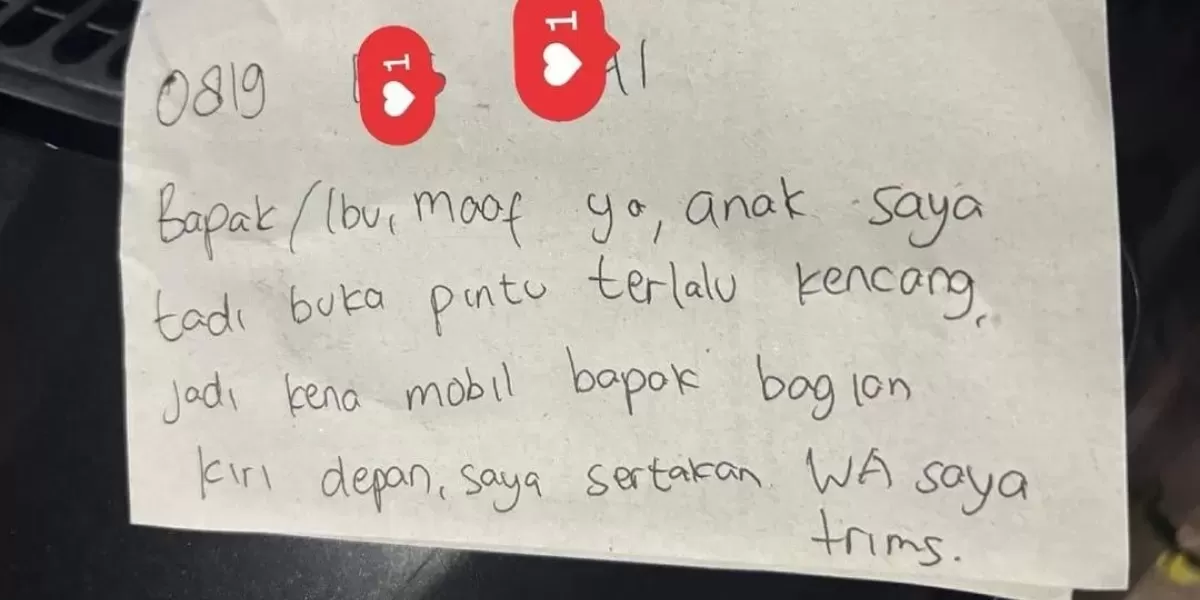 0819
1
1
41
Bapak/Ibu, maaf ya, anak saya
tadi buka pintu terlalu kencang,
jadi kena mobil bapak bagian
kiri depan, saya sertakan WA saya
trims.